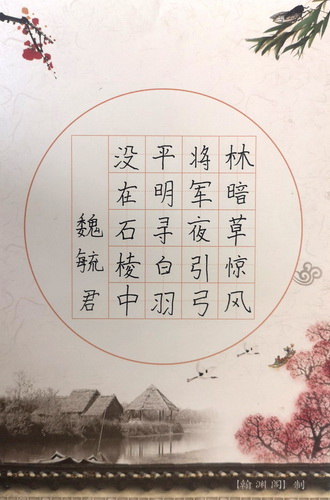 林暗草惊风
将军夜引弓
平明寻白羽
没在石棱中
魏毓君
【翰渊阁】制